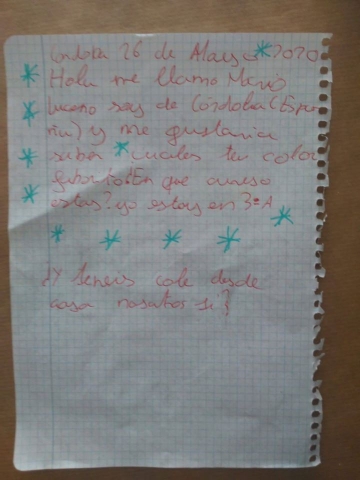 Cordoba 26 de Mayo 2020
Hola me llamo Mario
Lucano soy de Córdoba (Espa
ña) y me gustaria
saber cuales tu color
faborito? En que curso
estas? yo estoy en 3ºA
¿Y teneis cole desde
casa nosotros si?